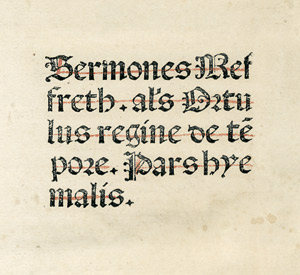 Sermones Mef
freth. als Ortu
lus regine de tē
pore. Pars hye
malis.